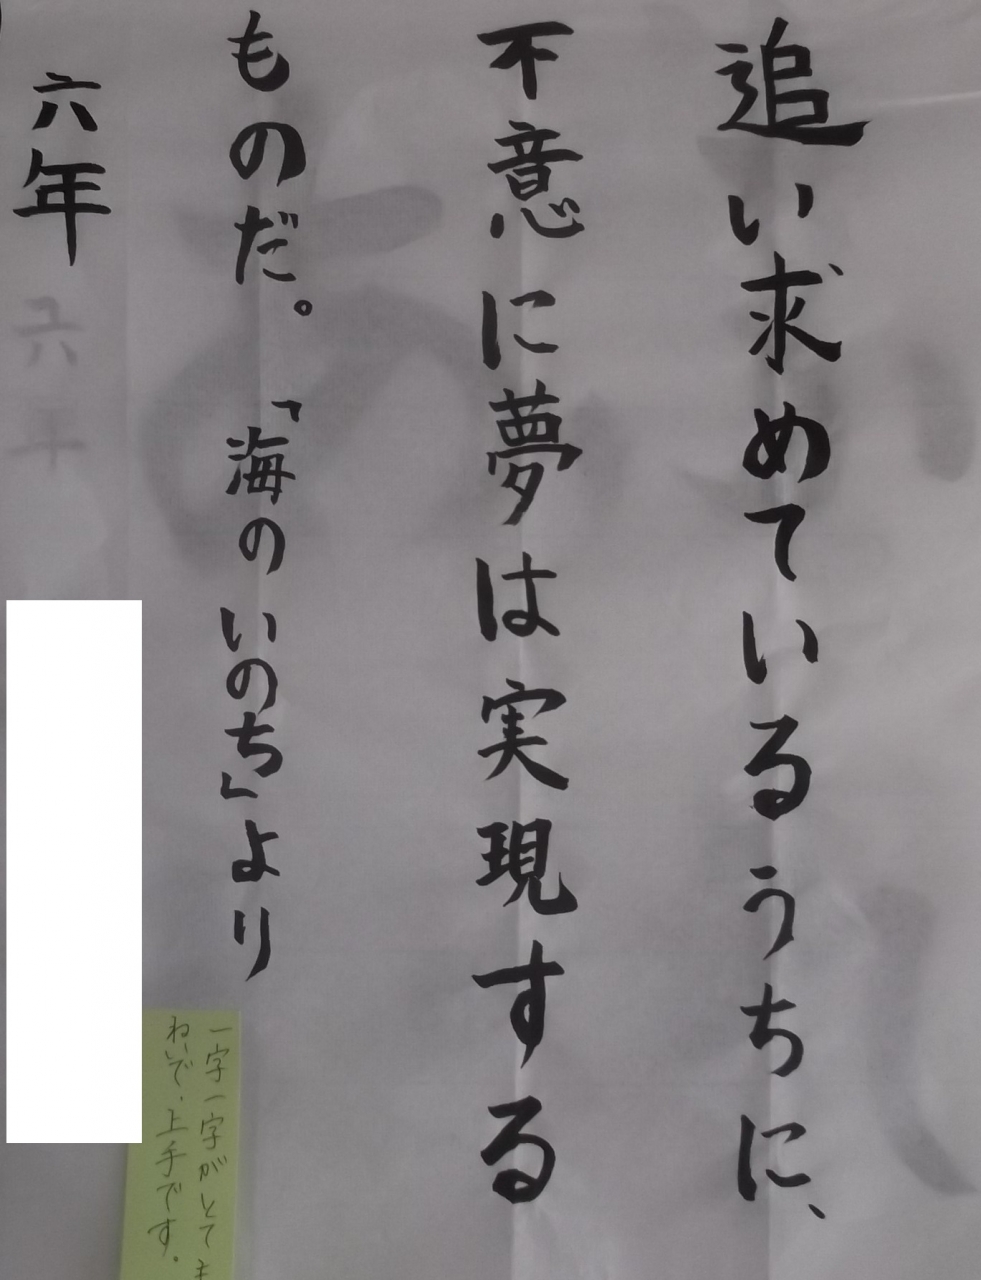 追い求めているうちに、
不意に夢は実現する
ものだ。「海のいのち」より
六年
一字一字がとても
ねいで、上手です。